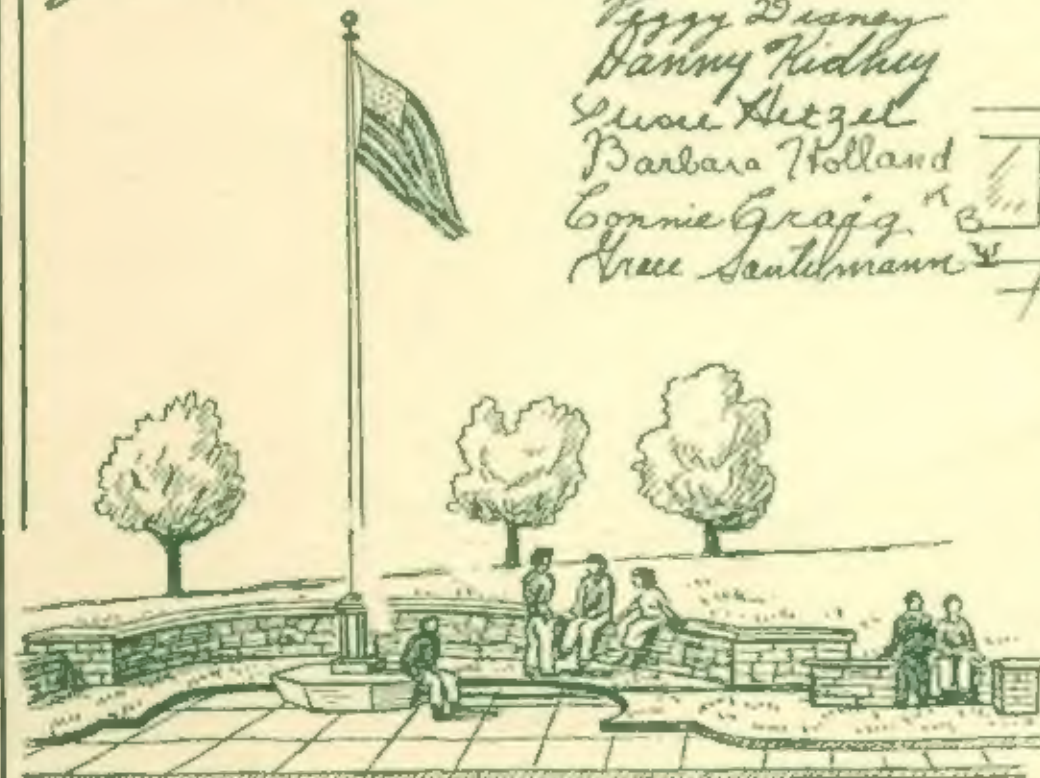 Peggy Disney
Danny Kidney
Susie Hetzel
Barbara Holland
Connie Graig
Santelmann